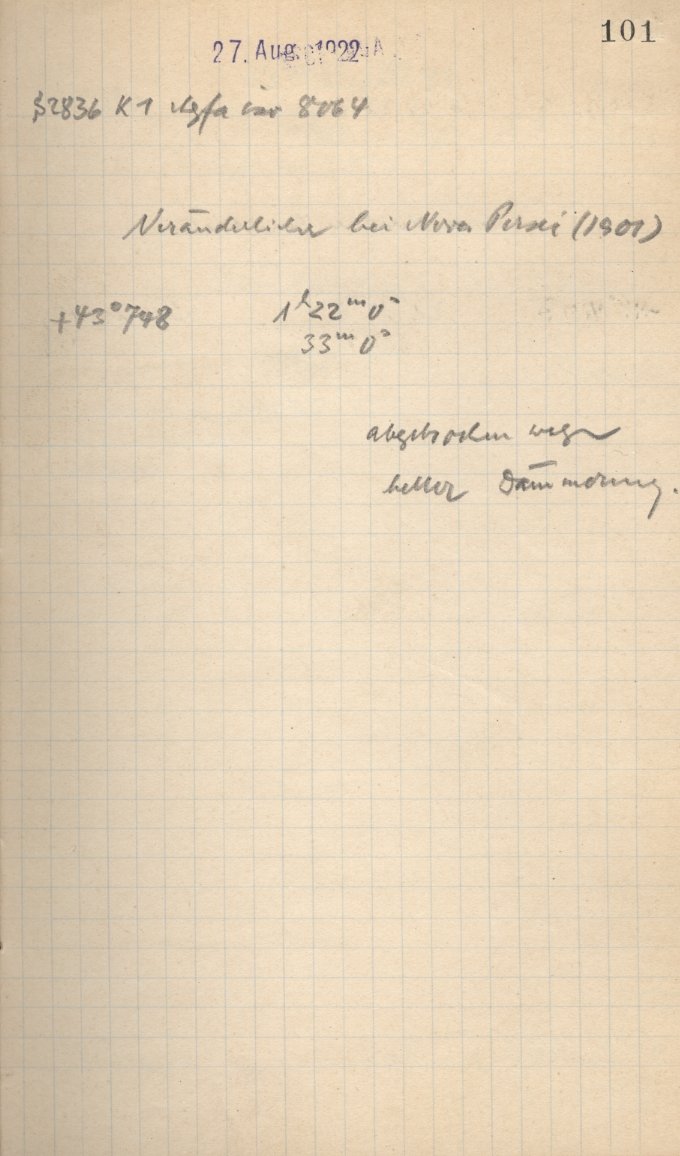 101
27. Aug. 1922
B2836 K1 Agfa iso 8064
Veränderlicher bei Nova Persei (1901)
+43°748 1h22m0s
33m0s
abgebrochen wegen
heller Dämmerung.